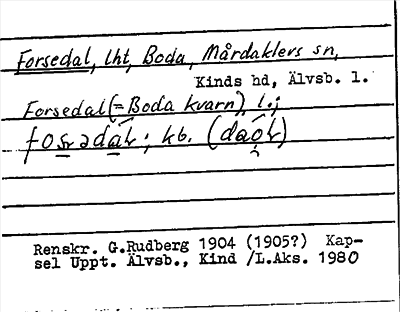 Forsedal, lht, Boda, Mårdaklevs sn,
Kinds hd, Älvsb. l.
Forsedal (= Boda kvarn), l.;
kb.
Renskr. G.Rudberg 1904 (1905?) Kap-
sel Uppt. Älvsb., Kind /L.Aks. 1980